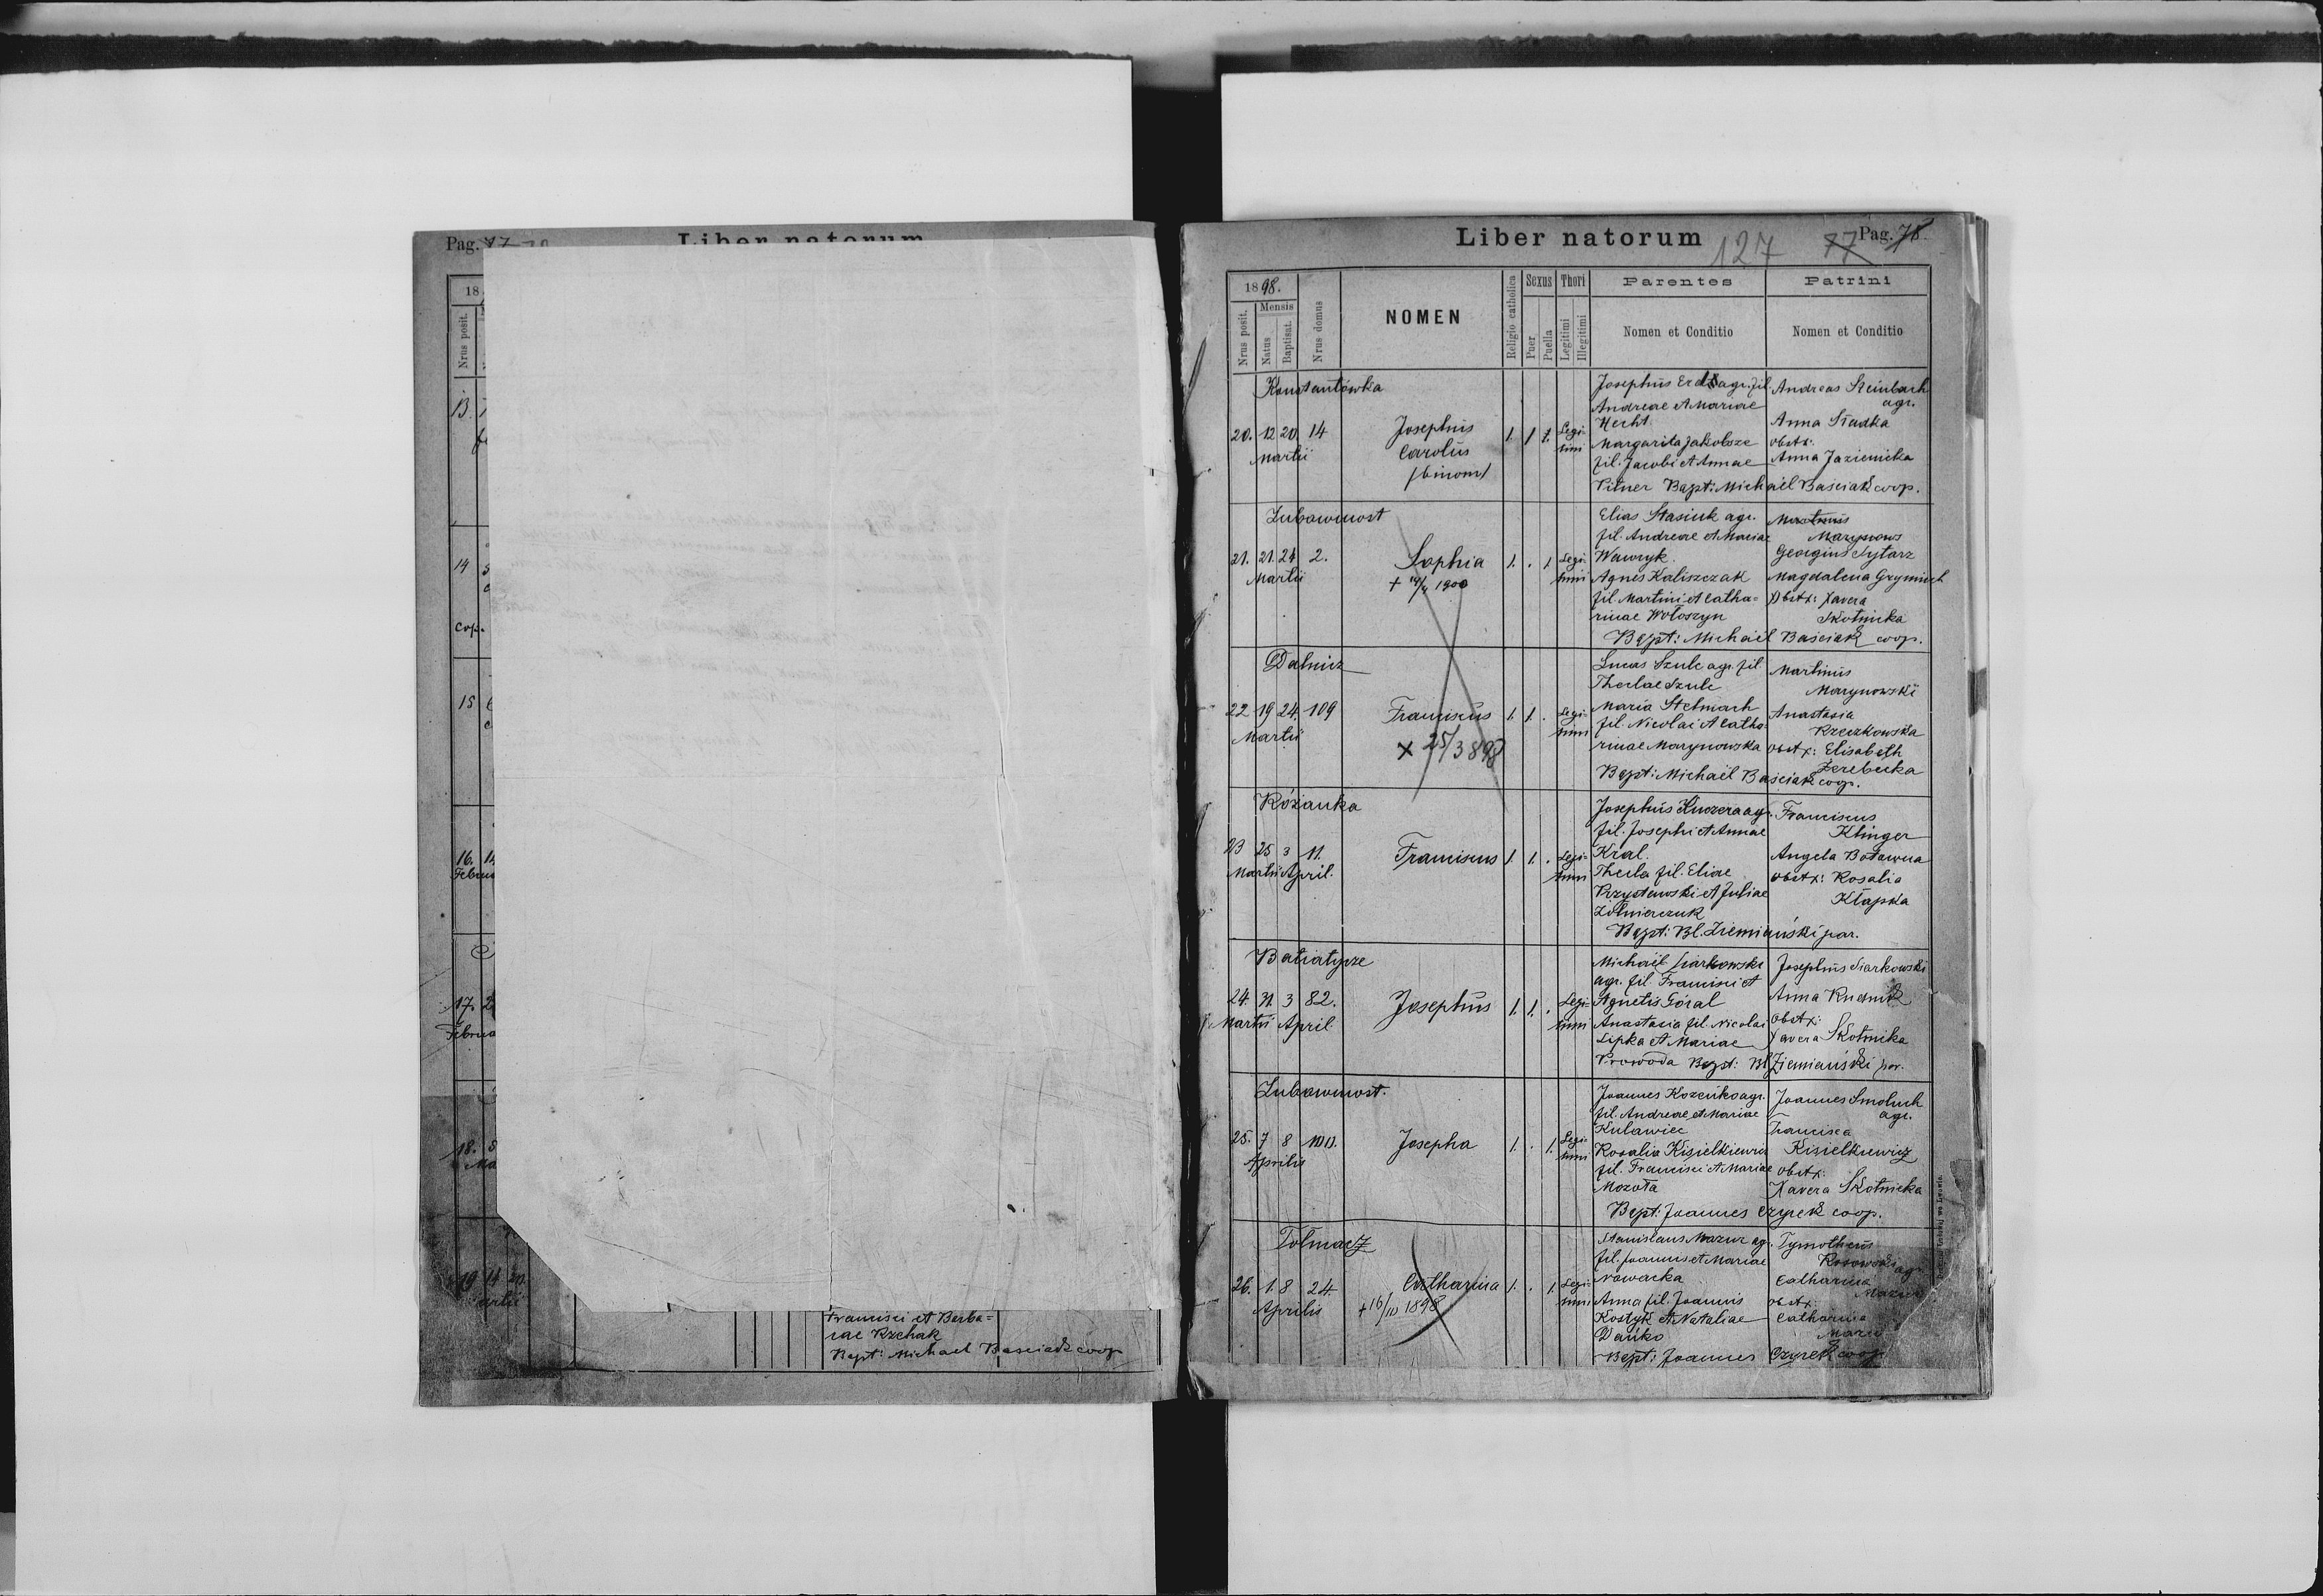 Pag.
Liber natorum
18
Nrus posit.
13.
14
cop.
15
16.
17.
18.
19 14 20.
Francisci et Barba=
rae Rzehak
Bapt: Michael Baściak coop
Liber natorum
127
77
Pag. 78.
1898.
Nrus posit.
Mensis
Natus
Baptisat.
Nrus domus
NOMEN
Religio catholica
Sexus
Puer
Puella
Thori
Legitimi
Illegitimi
Parentes
Nomen et Conditio
Patrini
Nomen et Conditio
Konstantówka
20. 12 20. 14
Martii
Josephus
Carolus
/binom/
1. 1 1.
Legi-
timi
Josephus agr. fil.
Andreae et Mariae
Hecht.
Margarita Jakobsze
fil. Jacobi et Annae
Pitner Bapt: Michaël Baściak coop.
Andreas Steinbach
agr.
Anna Siadka
obstx:
Anna Jazienicka
21. 21. 24 2.
Martii
Sophia
1. . 1
Legi-
timi
Elias Stasiuk agr.
fil. Andreae et Mariae
Wawryk.
Agnes Kaliszczak
fil. Martini et Catha=
rinae Wołoszyn
Bapt: Michaël Baściak coop.
Georgius Sytarz
Magdalena
Obstx: Xavera
Skotnicka
Dalnicz
22 19 24. 109
Martii
Franciscus
x 25/3 898
1. 1. .
Legi-
timi
Lucas Szulc agr. fil.
Theclae Szulc
Maria Stelmach
fil. Nicolai et Catha-
rinae Marynowska
Bapt: Michaël Baściak coop.
Martinus
Marynowski
Anastasia
Krzeczkowska
obstx: Elisabeth
Zerebecka
Różanka
23 25 3 11.
Martii April.
Franciscus
1. 1. .
Legi-
timi
Josephus Kuczera agr.
fil. Josephi et Annae
Kral.
Thecla fil. Eliae
Przystawski et Juliae
Żołnierczuk
Bapt: Bl. Ziemiański par.
Franciscus
Klinger
Angela
obstx: Rosalia
Kłapka
Batiatycze
24. 31. 3 82.
Martii April.
Josephus
1. 1. .
Legi-
timi
Michaël Siarkowski
agr. fil. Francisci et
Agnetis Góral
Anastasia fil. Nicolai
Lipka et Mariae
Prowoda Bapt: Bl. Ziemiański par.
Josephus Siarkowski
Anna Rudnik
obstx:
Xavera Skotnicka
25. 7 8
Aprilis
Josepha
1. . 1.
Legi-
timi
Joannes Kozeńko agr.
fil. Andreae et Mariae
Kulawiec
Rosalia Kisielkiewicz
fil. Francisci et Mariae
Mozoła
Bapt: Joannes Czyrek coop.
Joannes Smoluch
agr.
Francisca
Kisielkiewicz
obstx:
Xavera Skotnicka
Tołmacz
26. 1. 8 24
Aprilis
Catharina
1. . 1.
Legi-
timi
Stanislaus Mazur ag.
fil. Joannis et Mariae
Nowacka
Anna fil. Joannis
Kostyk et Nataliae
Dańko
Bapt: Joannes Czyrek coop.
Tymotheus
Catharina
obstx:
Catharina